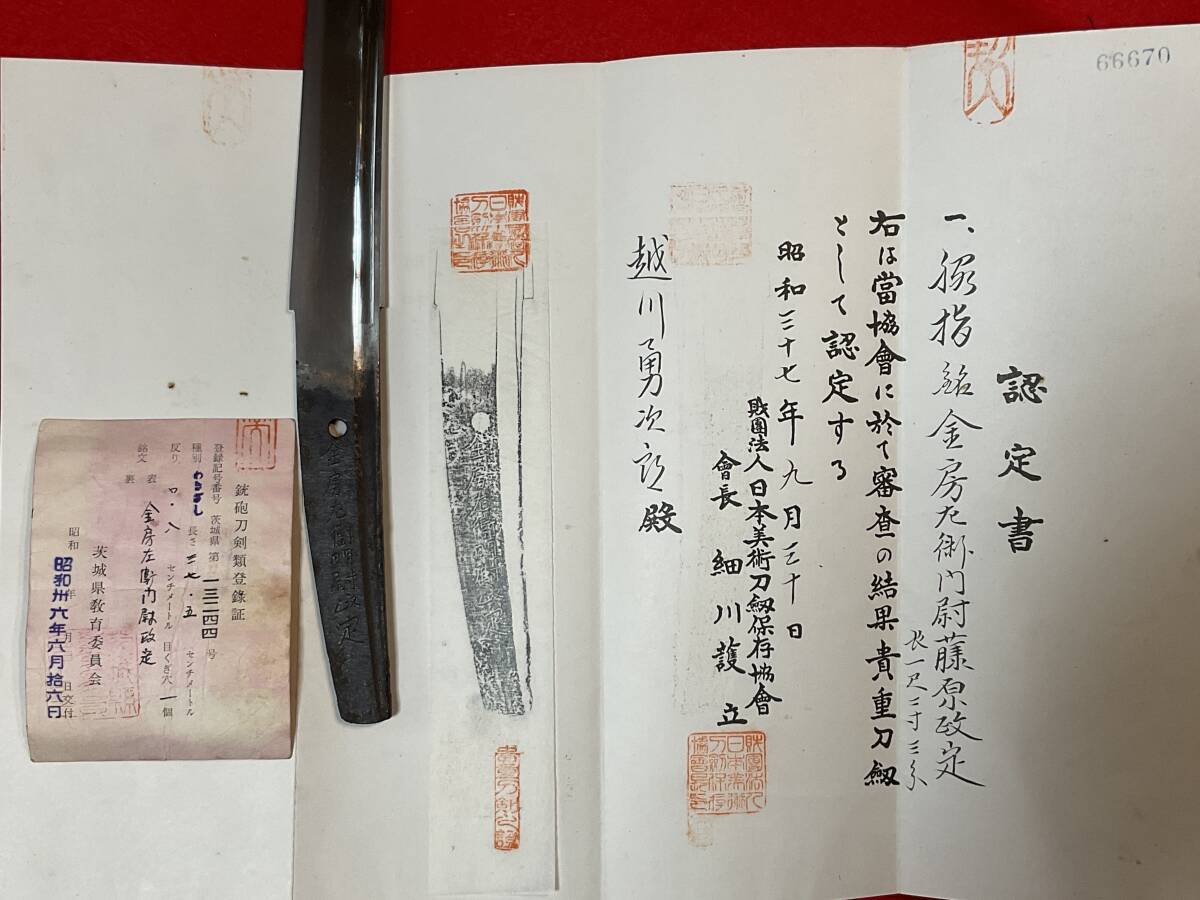 66670
認定書
一、脇指 銘金房左衛門尉藤原政定
長一尺二寸三分
右は當協會に於て審査の結果貴重刀劔
として認定する
昭和三十七年九月三十日
財團法人日本美術刀劔保存協會
會長 細川護立
越川勇次郎殿
貴重刀剣之證
金房左衛門尉政定
銃砲刀剣類登録証
登録記号番号 茨城県 第一三二四四号
種別 わきざし 長さ 三七・五 センチメートル
反り 〇・八 センチメートル 目くぎ穴 一個
銘文 表 金房左衛門尉政定
裏
茨城県教育委員会
昭和 年 月 日交付
昭和卅六年六月拾六日